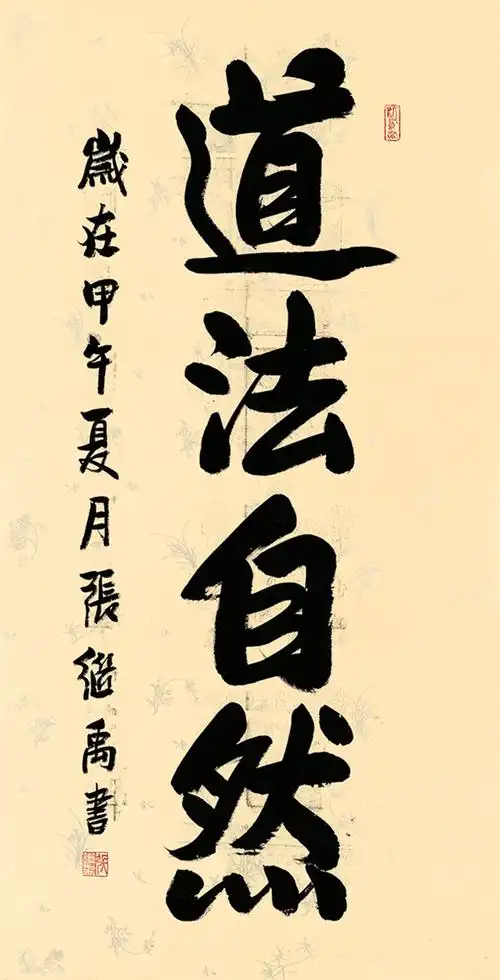 道法自然
歲在甲午夏月張繼禹書